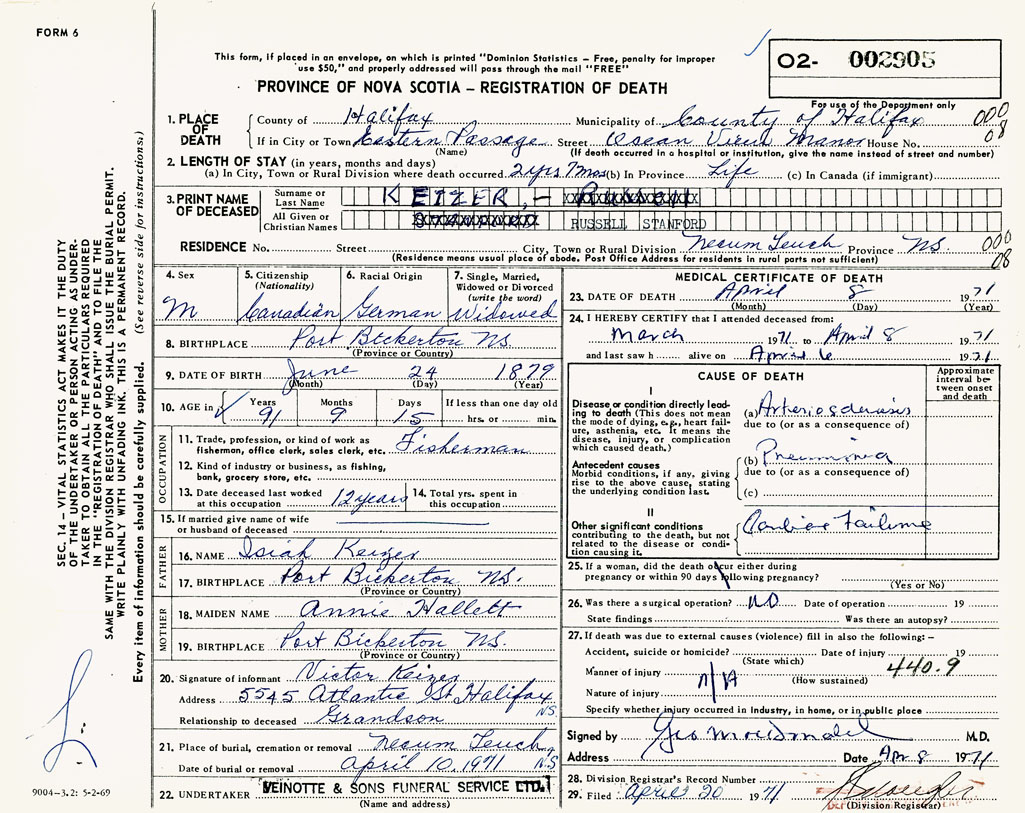 FORM 6
This form, if placed in an envelope, on which is printed "Dominion Statistics – Free, penalty for improper
use $50," and properly addressed will pass through the mail "FREE"
O2- 002905
PROVINCE OF NOVA SCOTIA – REGISTRATION OF DEATH
For use of the Department only
1. PLACE OF DEATH
County of Halifax Municipality of County of Halifax 000
If in City or Town Eastern Passage Street Ocean View Manor House No. 08
(Name) (If death occurred in a hospital or institution, give the name instead of street and number)
2. LENGTH OF STAY (in years, months and days)
(a) In City, Town or Rural Division where death occurred 2yrs 7mos (b) In Province Life (c) In Canada (if immigrant)
3. PRINT NAME OF DECEASED
Surname or Last Name KEIZER, – Russell
All Given or Christian Names RUSSELL STANFORD
RESIDENCE No. Street City, Town or Rural Division Necum Teuch Province NS. 000
(Residence means usual place of abode. Post Office Address for residents in rural parts not sufficient) 08
4. Sex 5. Citizenship (Nationality) 6. Racial Origin 7. Single, Married, Widowed or Divorced (write the word)
M Canadian German Widowed
8. BIRTHPLACE Port Bickerton NS.
(Province or Country)
9. DATE OF BIRTH June 24 1879
(Month) (Day) (Year)
10. AGE in Years Months Days If less than one day
91 9 15 hrs. or min.
OCCUPATION
11. Trade, profession, or kind of work as fisherman, office clerk, sales clerk, etc. Fisherman
12. Kind of industry or business, as fishing, bank, grocery store, etc.
13. Date deceased last worked at this occupation 12 years 14. Total yrs. spent in this occupation
15. If married give name of wife or husband of deceased
FATHER
16. NAME Isiah Keizer
17. BIRTHPLACE Port Bickerton NS.
(Province or Country)
MOTHER
18. MAIDEN NAME Annie Hallett
19. BIRTHPLACE Port Bickerton NS.
(Province or Country)
20. Signature of informant Victor Keizer
Address 5545 Atlantic St. Halifax NS.
Relationship to deceased Grandson
21. Place of burial, cremation or removal Necum Teuch, NS
Date of burial or removal April 10, 1971
22. UNDERTAKER VEINOTTE & SONS FUNERAL SERVICE LTD.
(Name and address)
MEDICAL CERTIFICATE OF DEATH
23. DATE OF DEATH April 8 1971
(Month) (Day) (Year)
24. I HEREBY CERTIFY that I attended deceased from:
March 1971 to April 8 1971
and last saw h alive on April 6 1971
CAUSE OF DEATH
Approximate interval between onset and death
I
Disease or condition directly leading to death (This does not mean the mode of dying, e.g., heart failure, asthenia, etc. It means the disease, injury, or complication which caused death.)
(a) Arteriosclerosis
due to (or as a consequence of)
Antecedent causes
Morbid conditions, if any, giving rise to the above cause, stating the underlying condition last.
(b) Pneumonia
due to (or as a consequence of)
(c)
II
Other significant conditions contributing to the death, but not related to the disease or condition causing it.
Cardiac Failure
25. If a woman, did the death occur either during pregnancy or within 90 days following pregnancy?
(Yes or No)
26. Was there a surgical operation? NO Date of operation 19
State findings Was there an autopsy?
27. If death was due to external causes (violence) fill in also the following: –
Accident, suicide or homicide? Date of injury 19
(State which)
Manner of injury N/A 440.9
(How sustained)
Nature of injury
Specify whether injury occurred in industry, in home, or in public place
Signed by Geo MacDonald M.D.
Address Date Apr. 8 1971
28. Division Registrar's Record Number
29. Filed April 20 1971
(Division Registrar)
SEC. 14 – VITAL STATISTICS ACT MAKES IT THE DUTY
OF THE UNDERTAKER OR PERSON ACTING AS UNDER-
TAKER TO OBTAIN ALL THE PARTICULARS REQUIRED
IN THE "REGISTRATION OF DEATH" AND TO FILE THE
SAME WITH THE DIVISION REGISTRAR WHO SHALL ISSUE THE BURIAL PERMIT.
WRITE PLAINLY WITH UNFADING INK. THIS IS A PERMANENT RECORD.
Every item of information should be carefully supplied. (See reverse side for instructions)
9004–3.2: 5-2-69